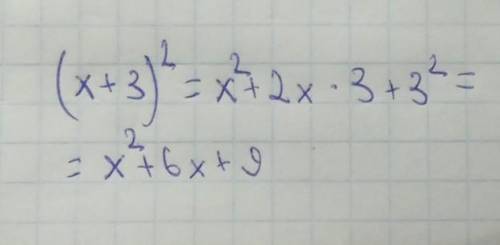 (x+3)² = x²+2x·3+3² =
= x²+6x+9